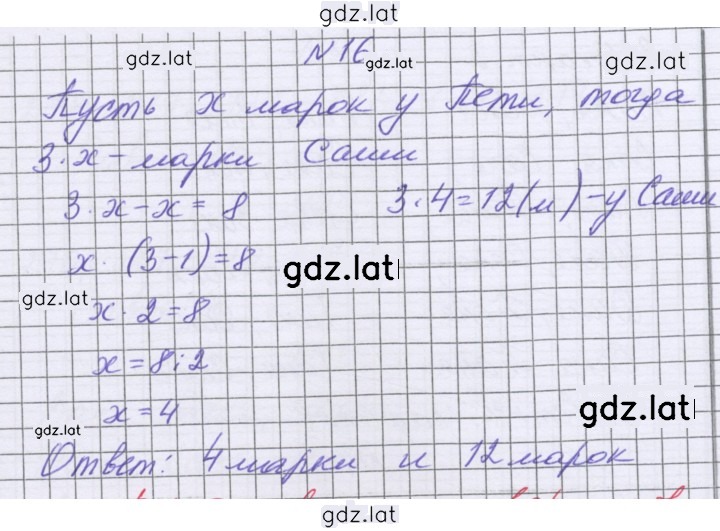 gdz.lat
№16
gdz.lat gdz.lat gdz.lat
Пусть x марок у Пети, тогда
3·x - марки Саши
3·x-x=8 3·4=12(м)-у Саши
x·(3-1)=8
gdz.lat gdz.lat
x·2=8
x=8:2
x=4
gdz.lat gdz.lat
Ответ: 4 марки и 12 марок
gdz.lat